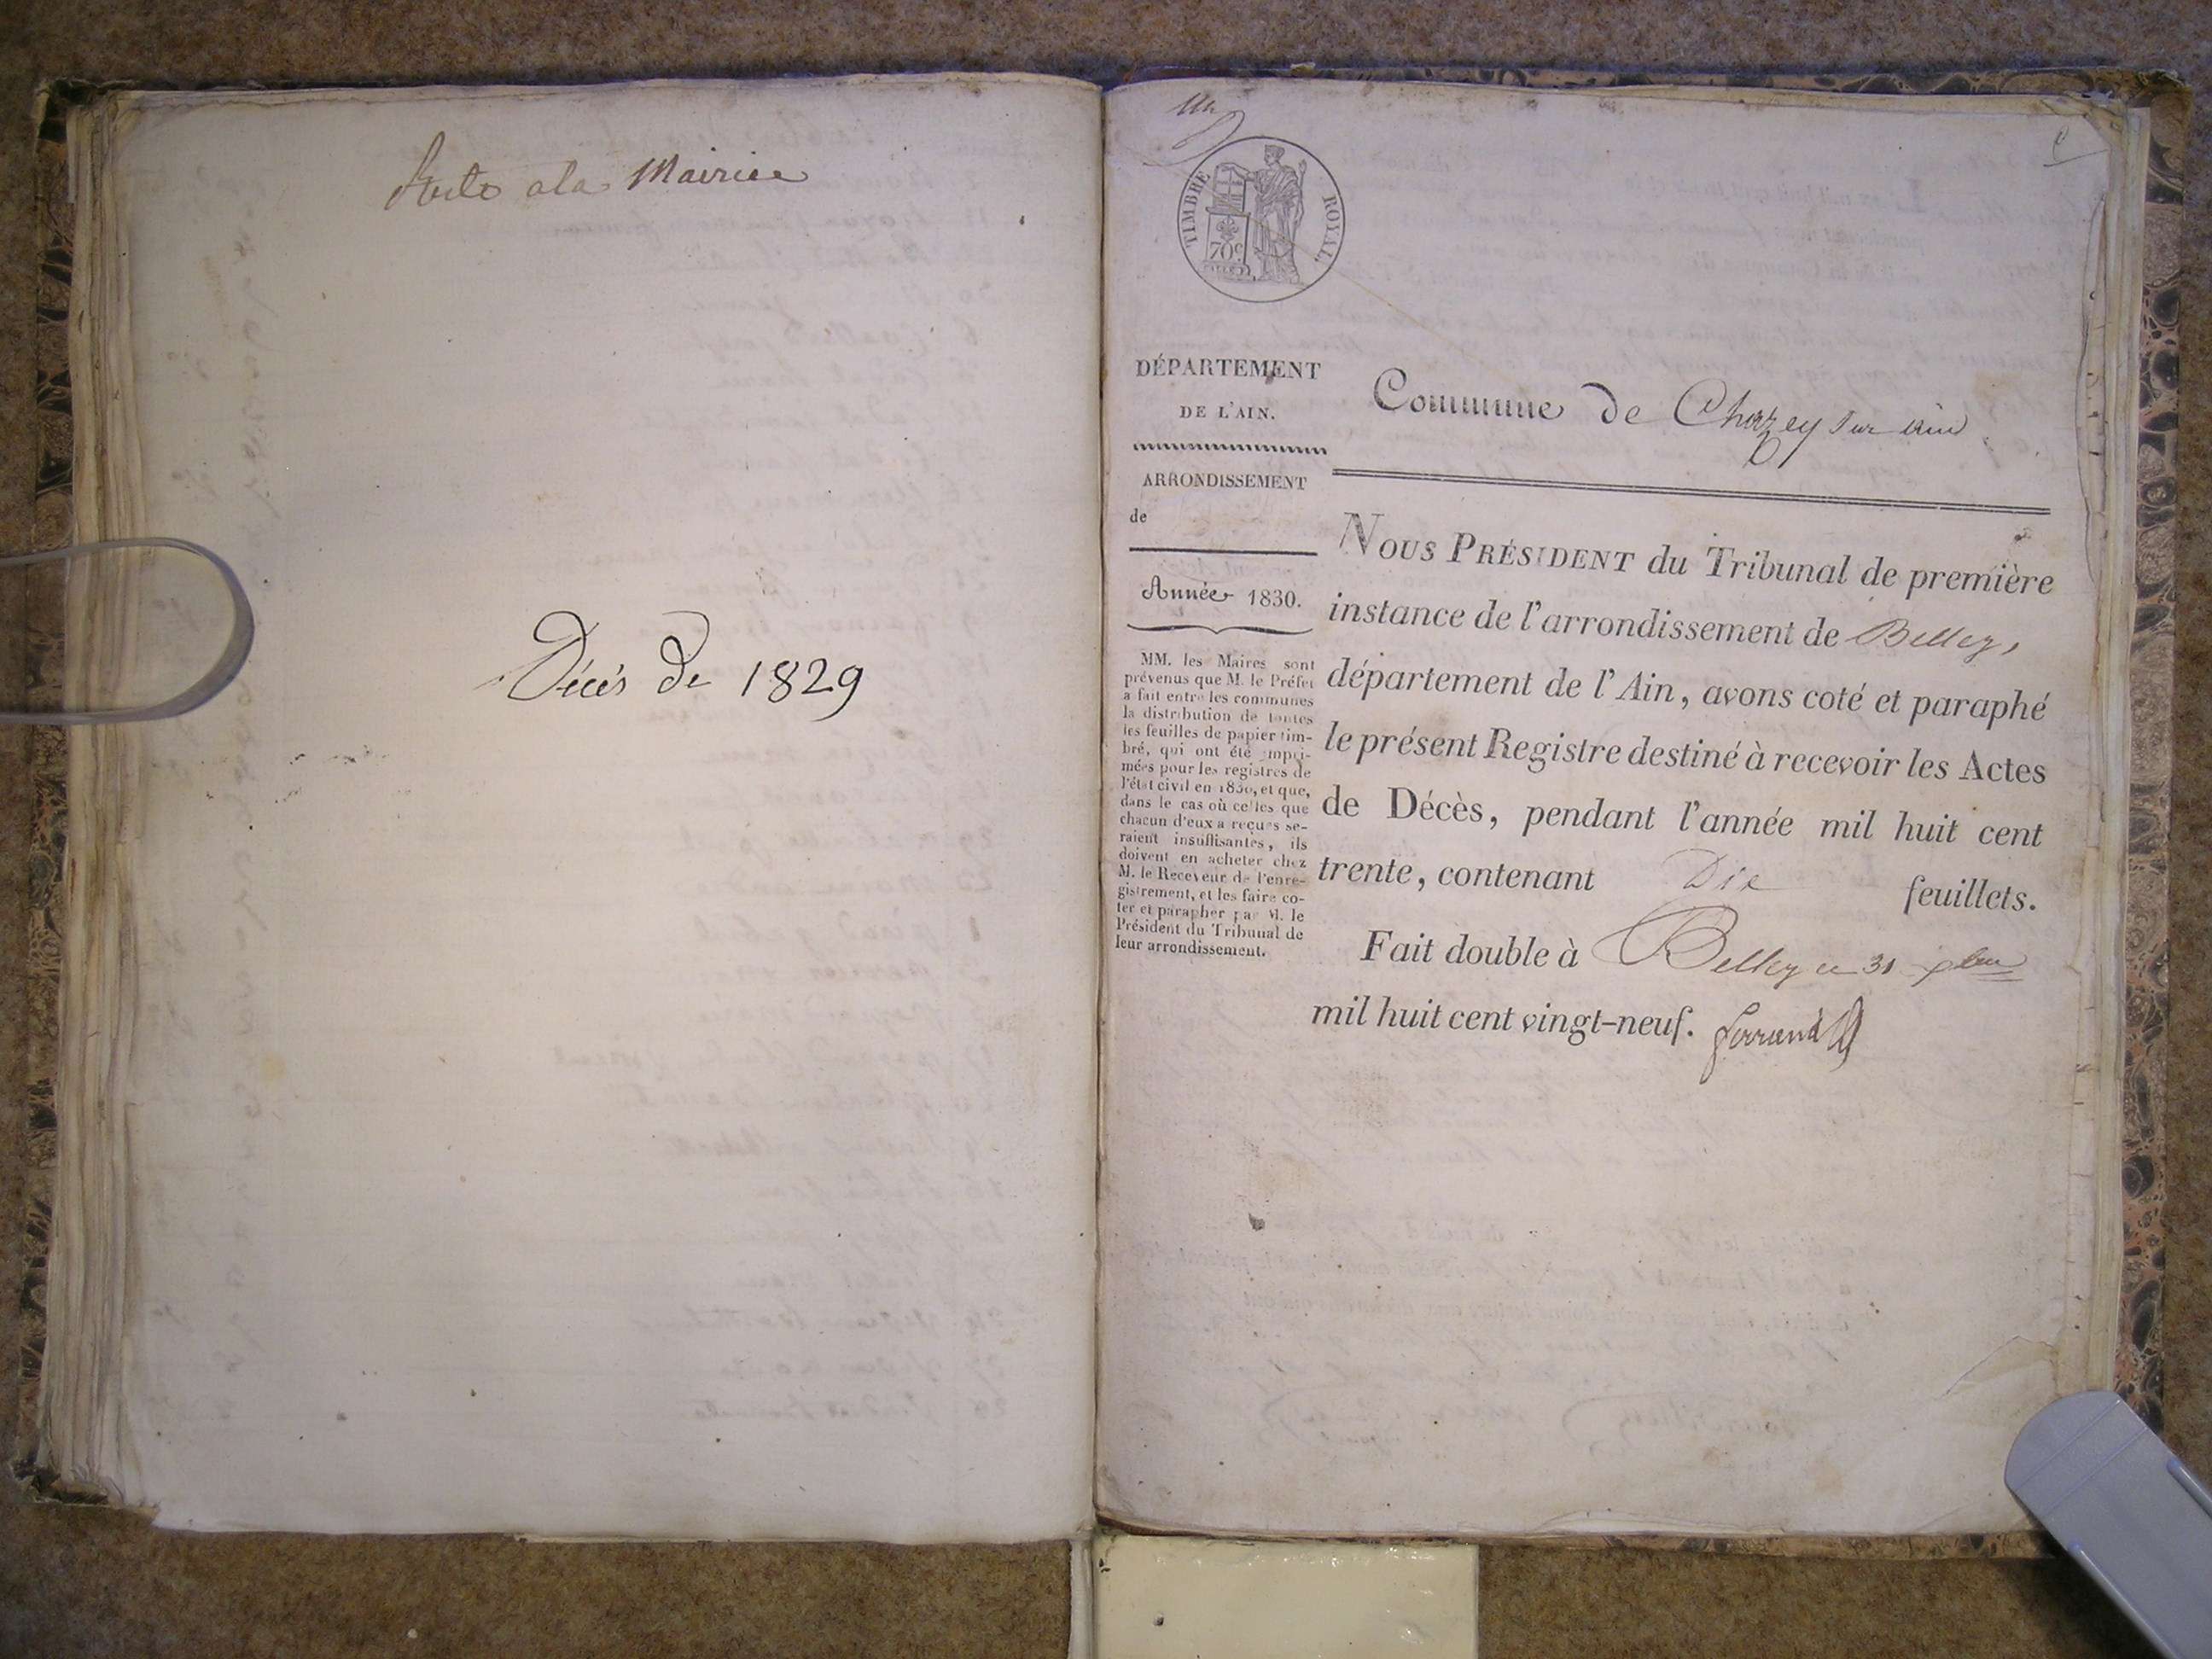 Reste a la Mairie
Décès de 1829
un
TIMBRE ROYAL.
70c
DÉPARTEMENT
DE L'AIN.
ARRONDISSEMENT
de
Année 1830.
MM. les Maires sont
prévenus que M. le Préfet
a fait entre les communes
la distribution de toutes
les feuilles de papier tim-
bré, qui ont été impri-
mées pour les registres de
l'état civil en 1830, et que,
dans le cas où celles que
chacun d'eux a reçues se-
raient insuffisantes, ils
doivent en acheter chez
M. le Receveur de l'enre-
gistrement, et les faire co-
ter et parapher par M. le
Président du Tribunal de
leur arrondissement.
Commune de Chazey sur ain
NOUS PRÉSIDENT du Tribunal de première
instance de l'arrondissement de Belley,
département de l'Ain, avons coté et paraphé
le présent Registre destiné à recevoir les Actes
de Décès, pendant l'année mil huit cent
trente, contenant Dix feuillets.
Fait double à Belley ce 31 xbre
mil huit cent vingt-neuf. ferrand